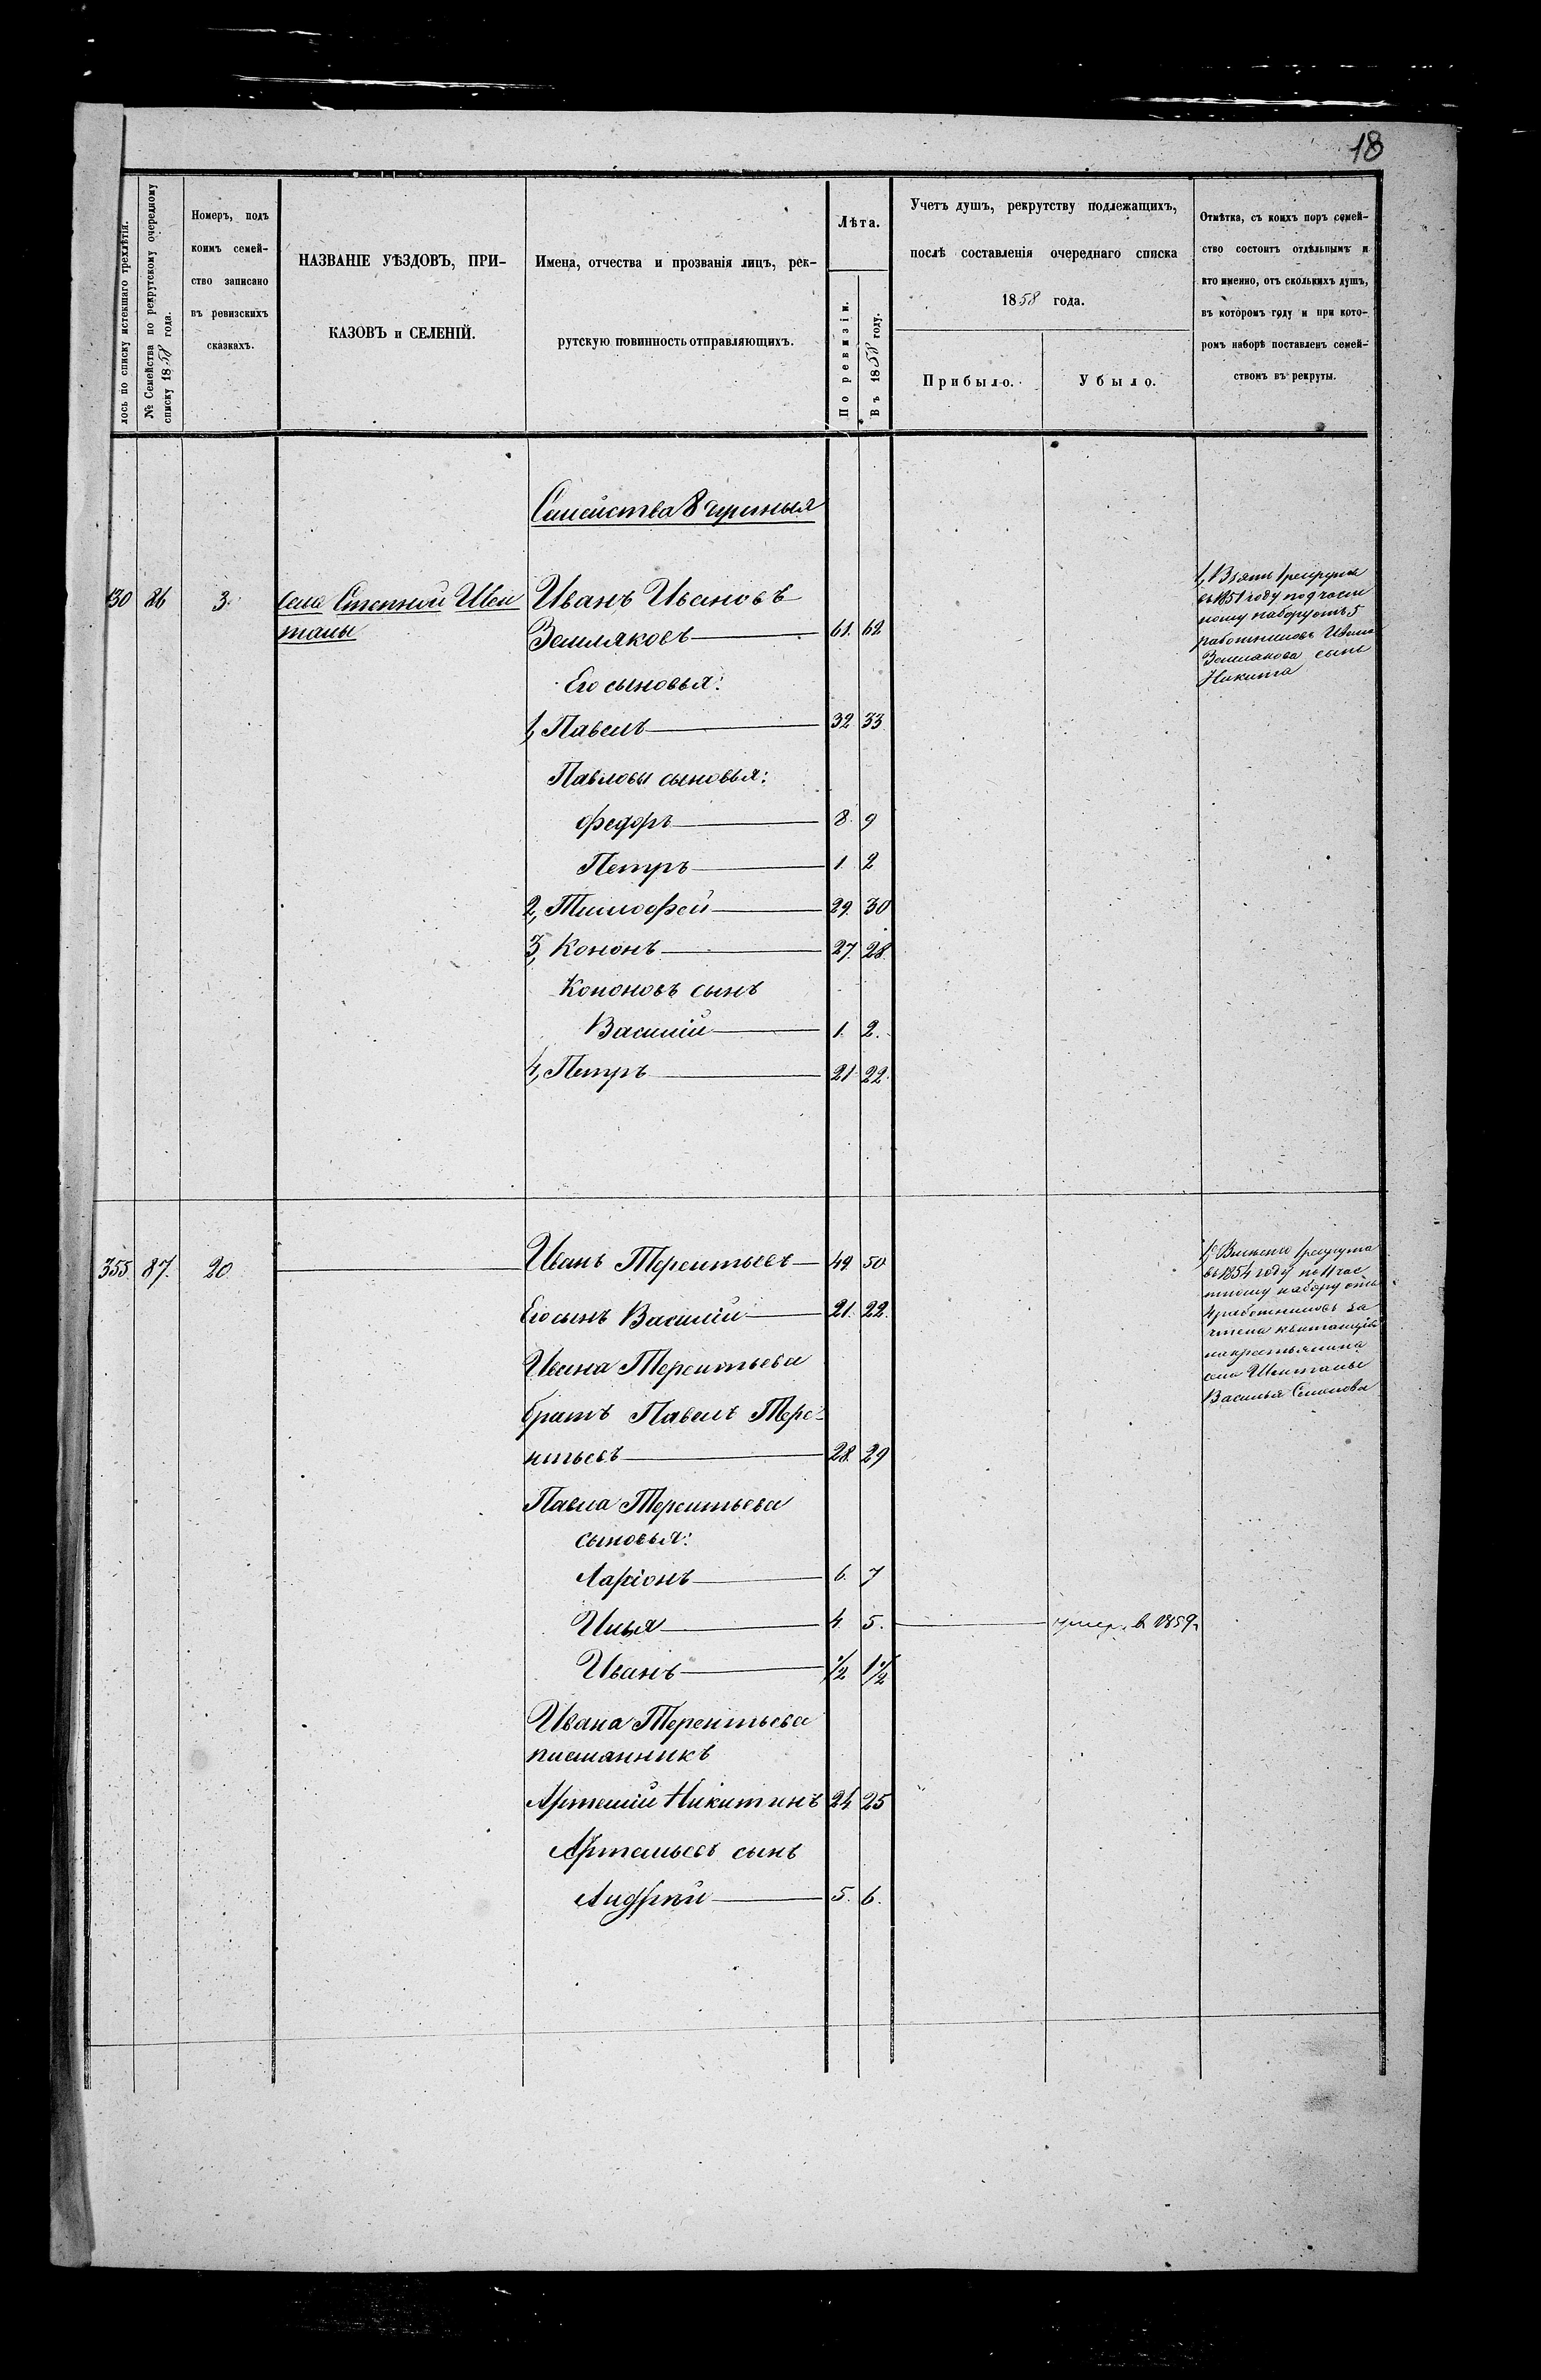 18
лось по списку истекшаго трехлѣтія.
№ Семейства по рекрутскому очередному
списку 1858 года.
Номеръ, подъ
коимъ семей-
ство записано
въ ревизскихъ
сказкахъ.
НАЗВАНІЕ УѢЗДОВЪ, ПРИ-
КАЗОВЪ и СЕЛЕНІЙ.
Имена, отчества и прозванія лицъ, рек-
рутскую повинность отправляющихъ.
Лѣта.
По ревизіи.
Въ 1858 году.
Учетъ душъ, рекрутству подлежащихъ,
послѣ составленія очереднаго списка
1858 года.
Прибыло.
Убыло.
Отмѣтка, съ коихъ поръ семей-
ство состоитъ отдѣльнымъ и
кто именно, отъ сколькихъ душъ,
въ которомъ году и при кото-
ромъ наборѣ поставленъ семей-
ствомъ въ рекруты.
Семейства 8 душныя
30 86 3. села Степной Шен Иванъ Ивановъ
талы Земляковъ 61. 62
Его сыновья:
1, Павелъ 32 33.
Павловы сыновья:
Федоръ 8. 9
Петръ 1. 2
2, Тимофей 29. 30
3, Кононъ 27. 28.
Кононовъ сынъ
Василій 1. 2.
4, Петръ 21. 22.
1, Взятъ 1 рекрутъ
въ 1851 году по 9 части
ному набору отъ 5
работниковъ Ивана
Землякова сынъ
Никита
355. 87. 20 Иванъ Терентьевъ 49. 50
Его сынъ Василій 21. 22.
Ивана Терентьева
братъ Павелъ Тере-
нтьевъ 28. 29
Павла Терентьева
сыновья:
Ларіонъ 6. 7
Илья 4. 5. умер. в 1859 г
Иванъ ½ 1½
Ивана Терентьева
племянникъ
Артемій Никитинъ 24 25
Артемьевъ сынъ
Андрей 5. 6.
1, Вмѣсто 1 рекрута
въ 1854 году по 11 час
тному набору отъ
4 работниковъ за
чтена квитанція
на крестьянина
села Шенталы
Василья Семенова